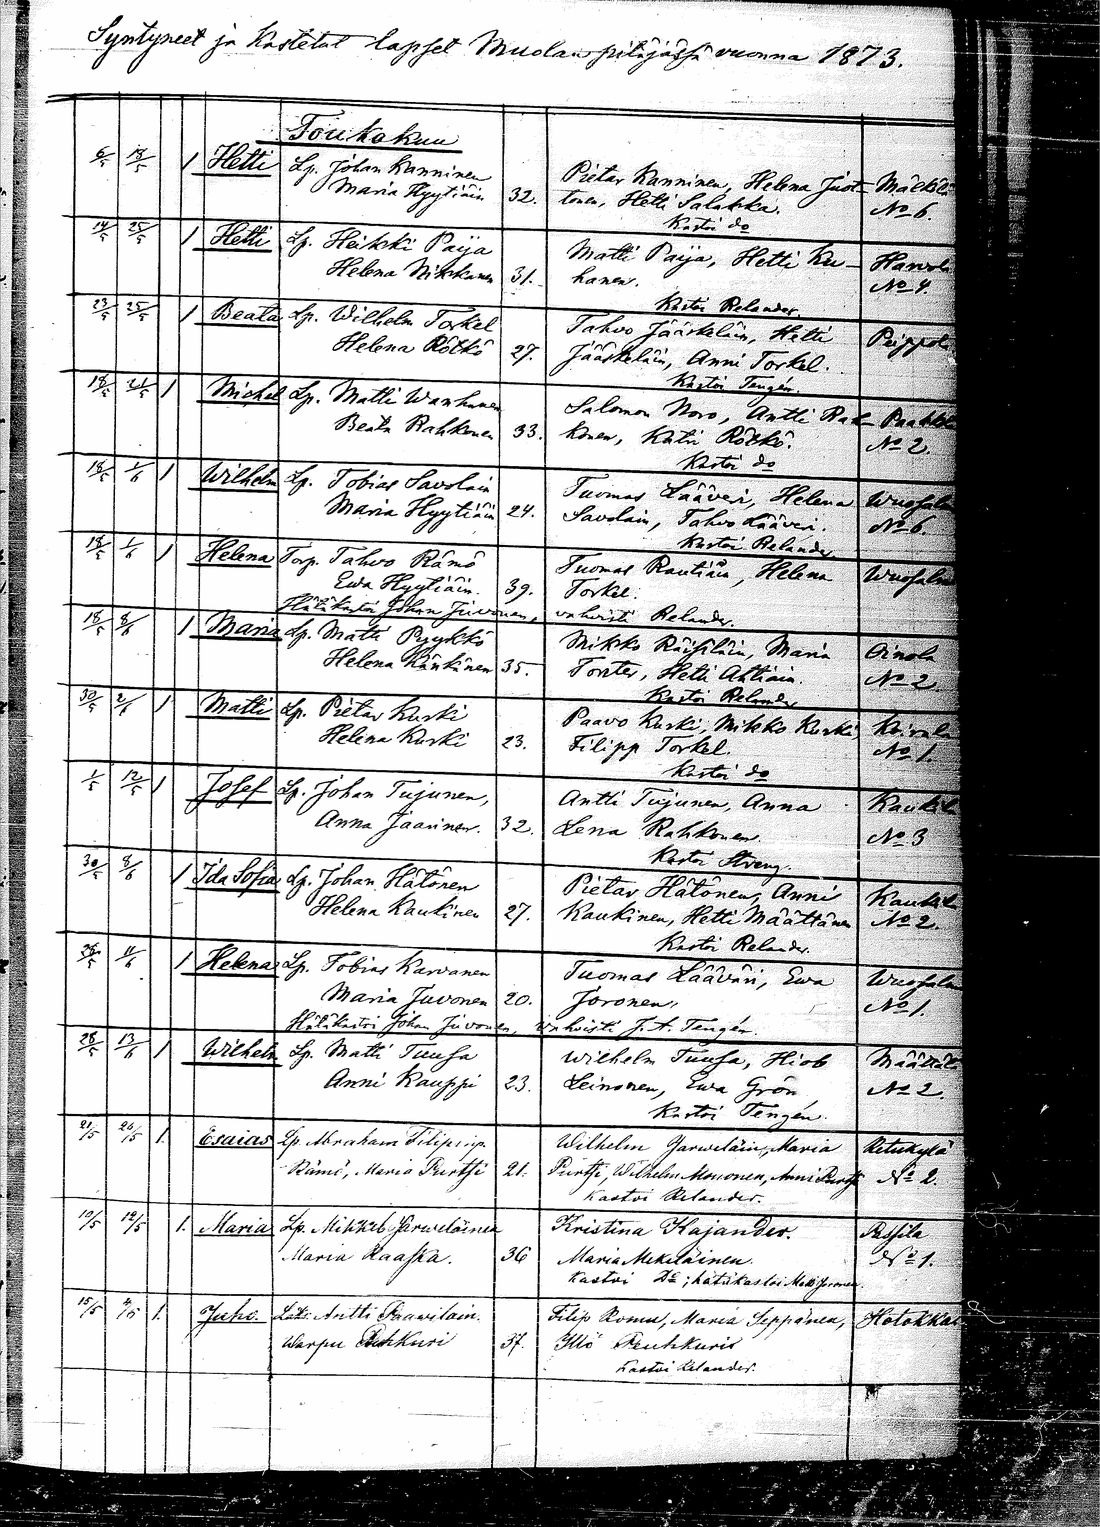 Syntyneet ja Kastetut lapset Muolan pitäjässä vuonna 1873.
Toukokuu
6/5 18/5 1 Hetti Lp. Johan Kanninen Pietar Kanninen, Helena Just-
Maria Hyytiäin 32. tonen, Hetti Salakka. No 6.
Kastoi do
14/5 25/5 1 Hetti Lp. Heikki Paija Matti Paija, Hetti Ku-
Helena Nikkanen 31. hanen. No 4.
Kastoi Relander.
23/5 25/5 1 Beata Lp. Wilhelm Torkel Tahvo Jääskeläin, Hetti
Helena Rötkö 27. Jääskeläin, Anni Torkel.
Kastoi Tengén.
18/5 21/5 1 Michel Lp. Matti Wanhanen Salomon Noro, Antti Rah-
Beata Rahkonen 33. konen, Katri Rötkö. No 2.
Kastoi do
18/5 1/6 1 Wilhelm Lp. Tobias Savolain Tuomas Lääveri, Helena
Maria Hyytiäin 24. Savolain, Tahvo Lääveri. No 6.
Kastoi Relander
18/5 1/6 1 Helena Torp. Tahvo Rämö Tuomas Rautiain, Helena
Ewa Hyytiäin. 39. Torkel.
Hätäkastoi Johan Juvonen, vahvisti Relander.
18/5 8/6 1 Maria Lp. Matti Pyykkö Mikko Räisäläin, Maria Oinola
Helena Känkänen 35. Torster, Hetti Ahtiain. No 2
Kastoi Relander
30/5 2/6 1 Matti Lp. Pietar Kurki Paavo Kurki, Mikko Kurki,
Helena Kurki 23. Filipp Torkel. No 1.
Kastoi do
1/5 12/5 1 Josef Lp. Johan Tujunen, Antti Tujunen, Anna
Anna Jaarinen. 32. Lena Rahkonen. No 3
Kastoi Streng.
30/5 8/6 1 Ida Sofia Lp. Johan Hätönen Pietar Hätönen, Anni
Helena Kaukinen 27. Kaukinen, Hetti Määttänen No 2.
Kastoi Relander.
11/6 1 Helena Lp. Tobias Karvanen Tuomas Lääväri, Ewa
Maria Juvonen 20. Joronen, No 1.
Hätäkastoi Johan Juvonen, wahvisti J. A. Tengén.
28/5 13/6 1 Wilhelm Lp. Matti Tuusa Wilhelm Tuusa, Hiob
Anni Kauppi 23. Leinonen, Ewa Grön No 2.
Kastoi Tengén.
21/5 26/5 1. Esaias Lp. Abraham Filipinp. Wilhelm Jarweläin, Maria Retukylä
Rämö, Maria Purtsi 21. Purtsi, Wilhelm Mononen, Anni Purtsi No 2.
Kastoi Relander.
10/5 12/5 1. Maria Lp. Mikkeb Järweläinen Kristina Kajander. Passila
Maria Raaska. 36 Maria Mikeläinen No 1.
Kastoi Do; hätäkastoi Matti
15/5 1. Juho. Antti Paavilain. Filip Romu, Maria Seppänen, Hotokka
Warpu Peuhkuri 37. Yllö Peuhkuri
Kastoi Relander.